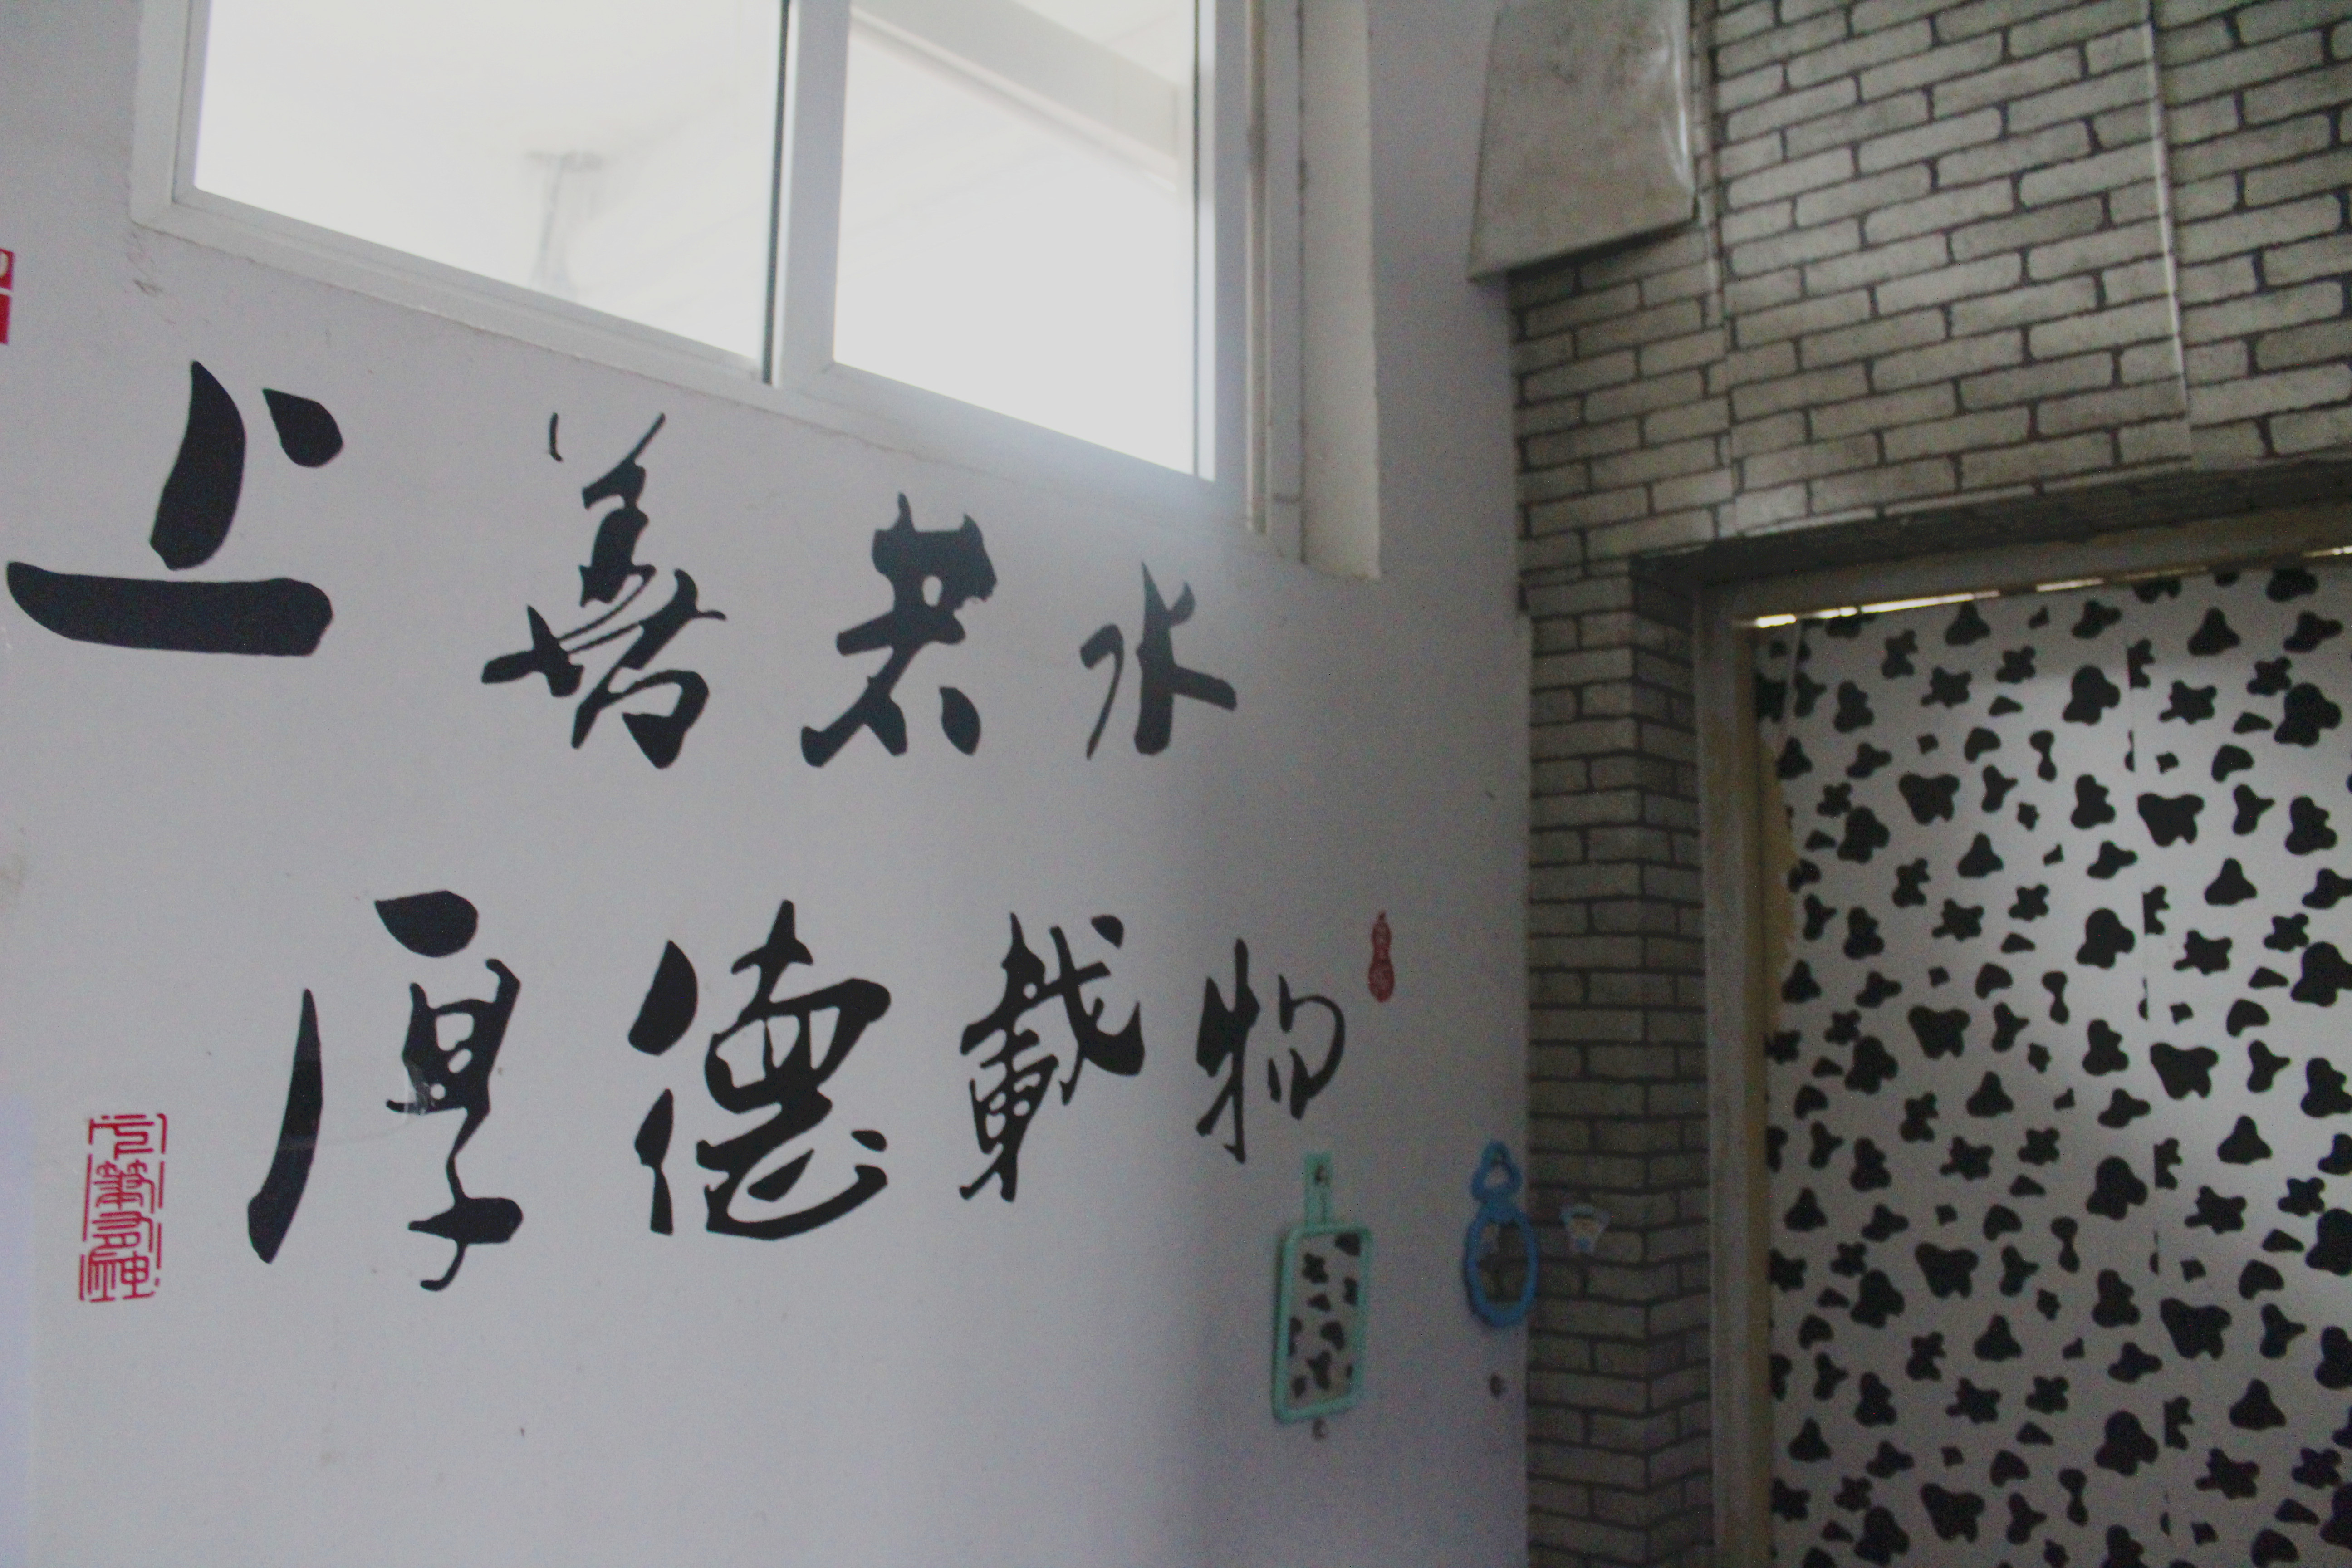 上善若水
厚德載物